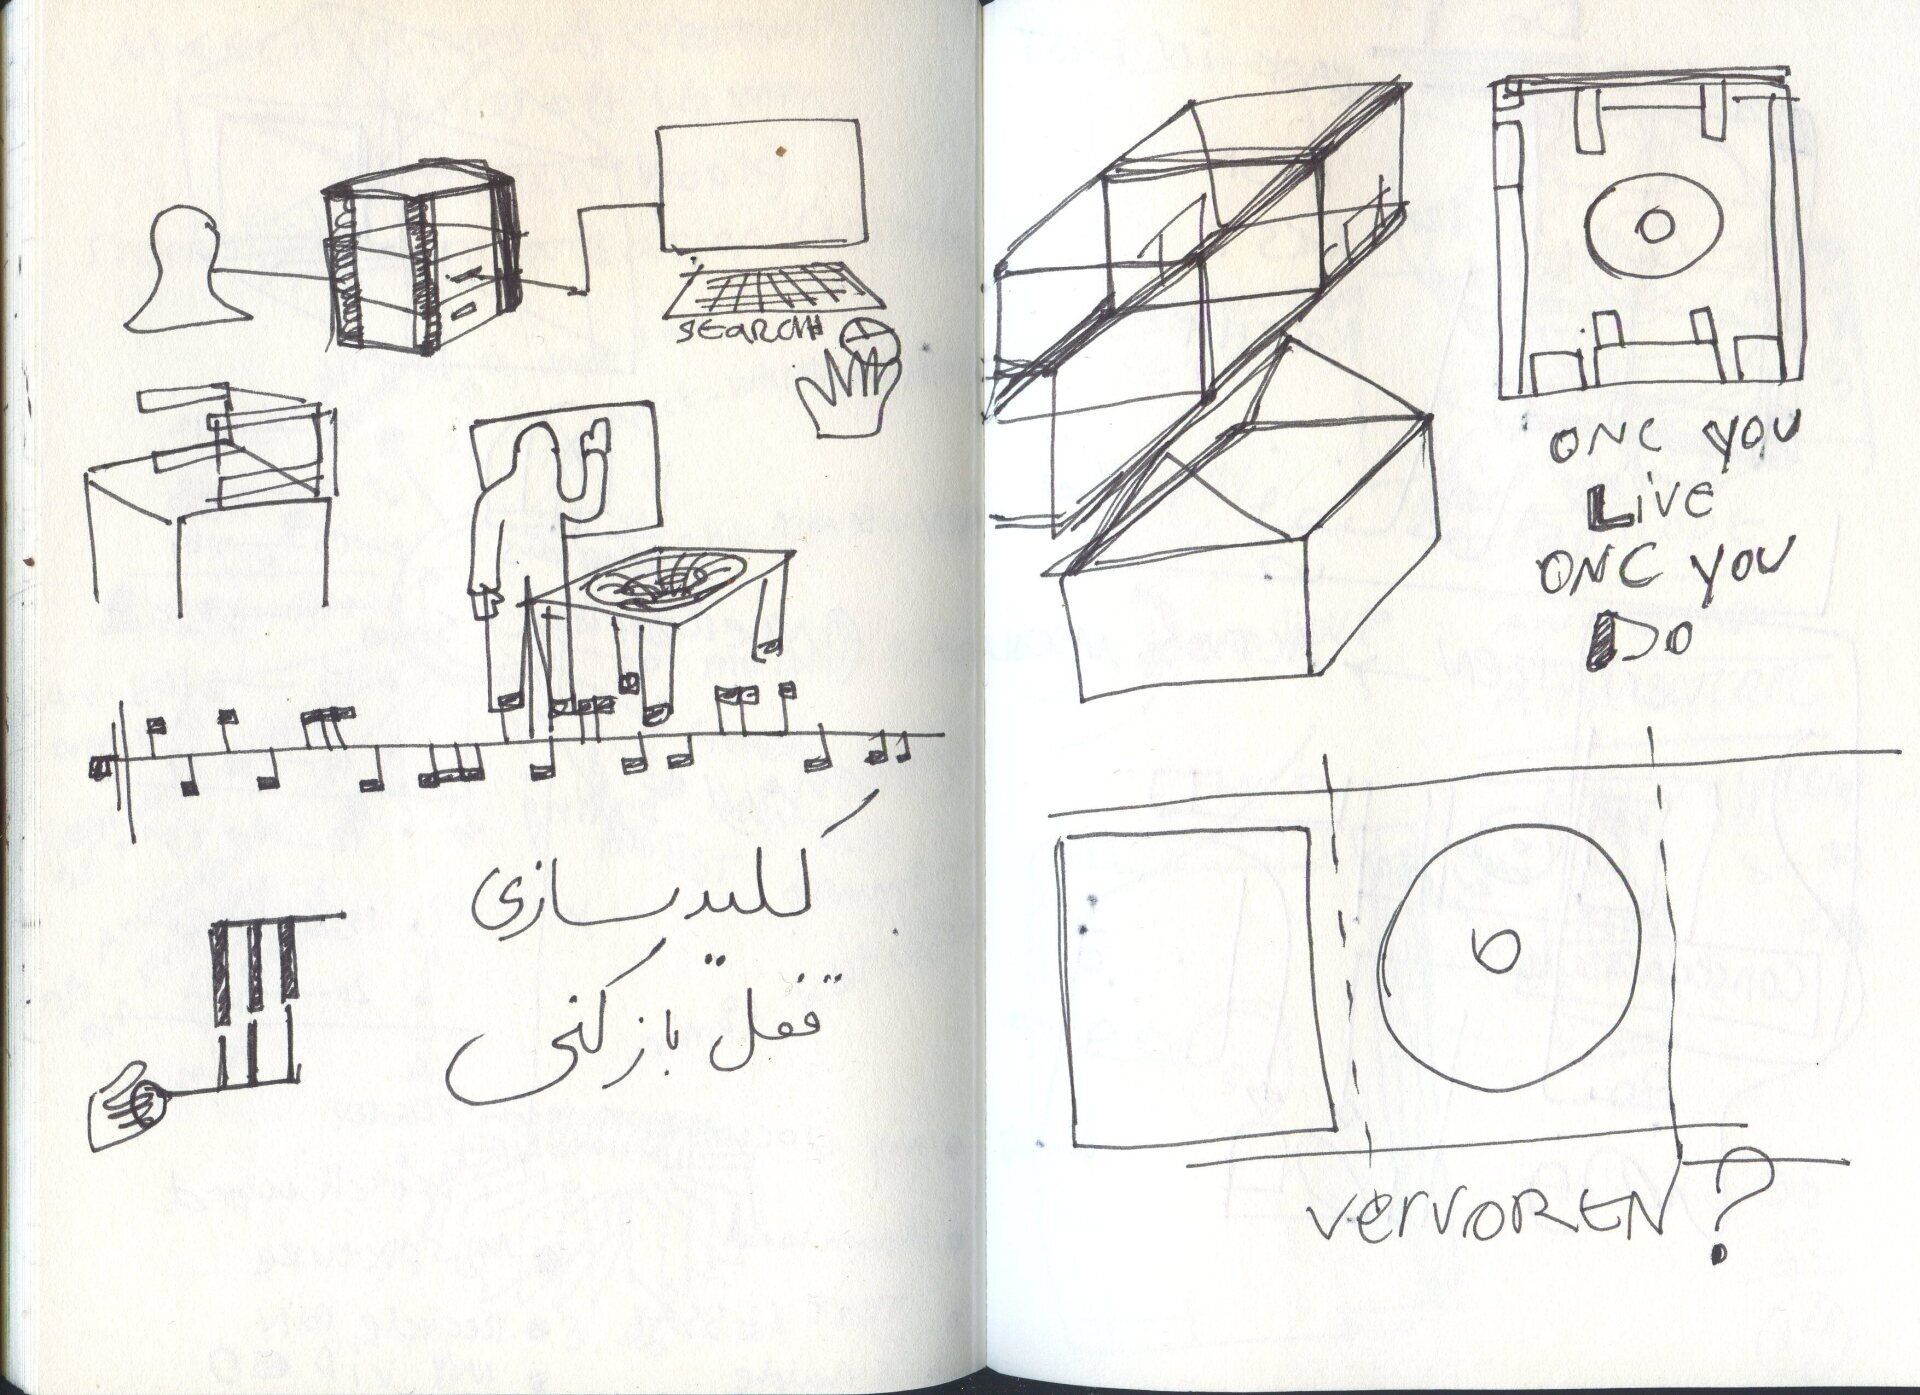 SEARCH
کلید سازی
قفل باز کنی
ONC YOU
LivE
ONC YOU
DO
VerVOREN?